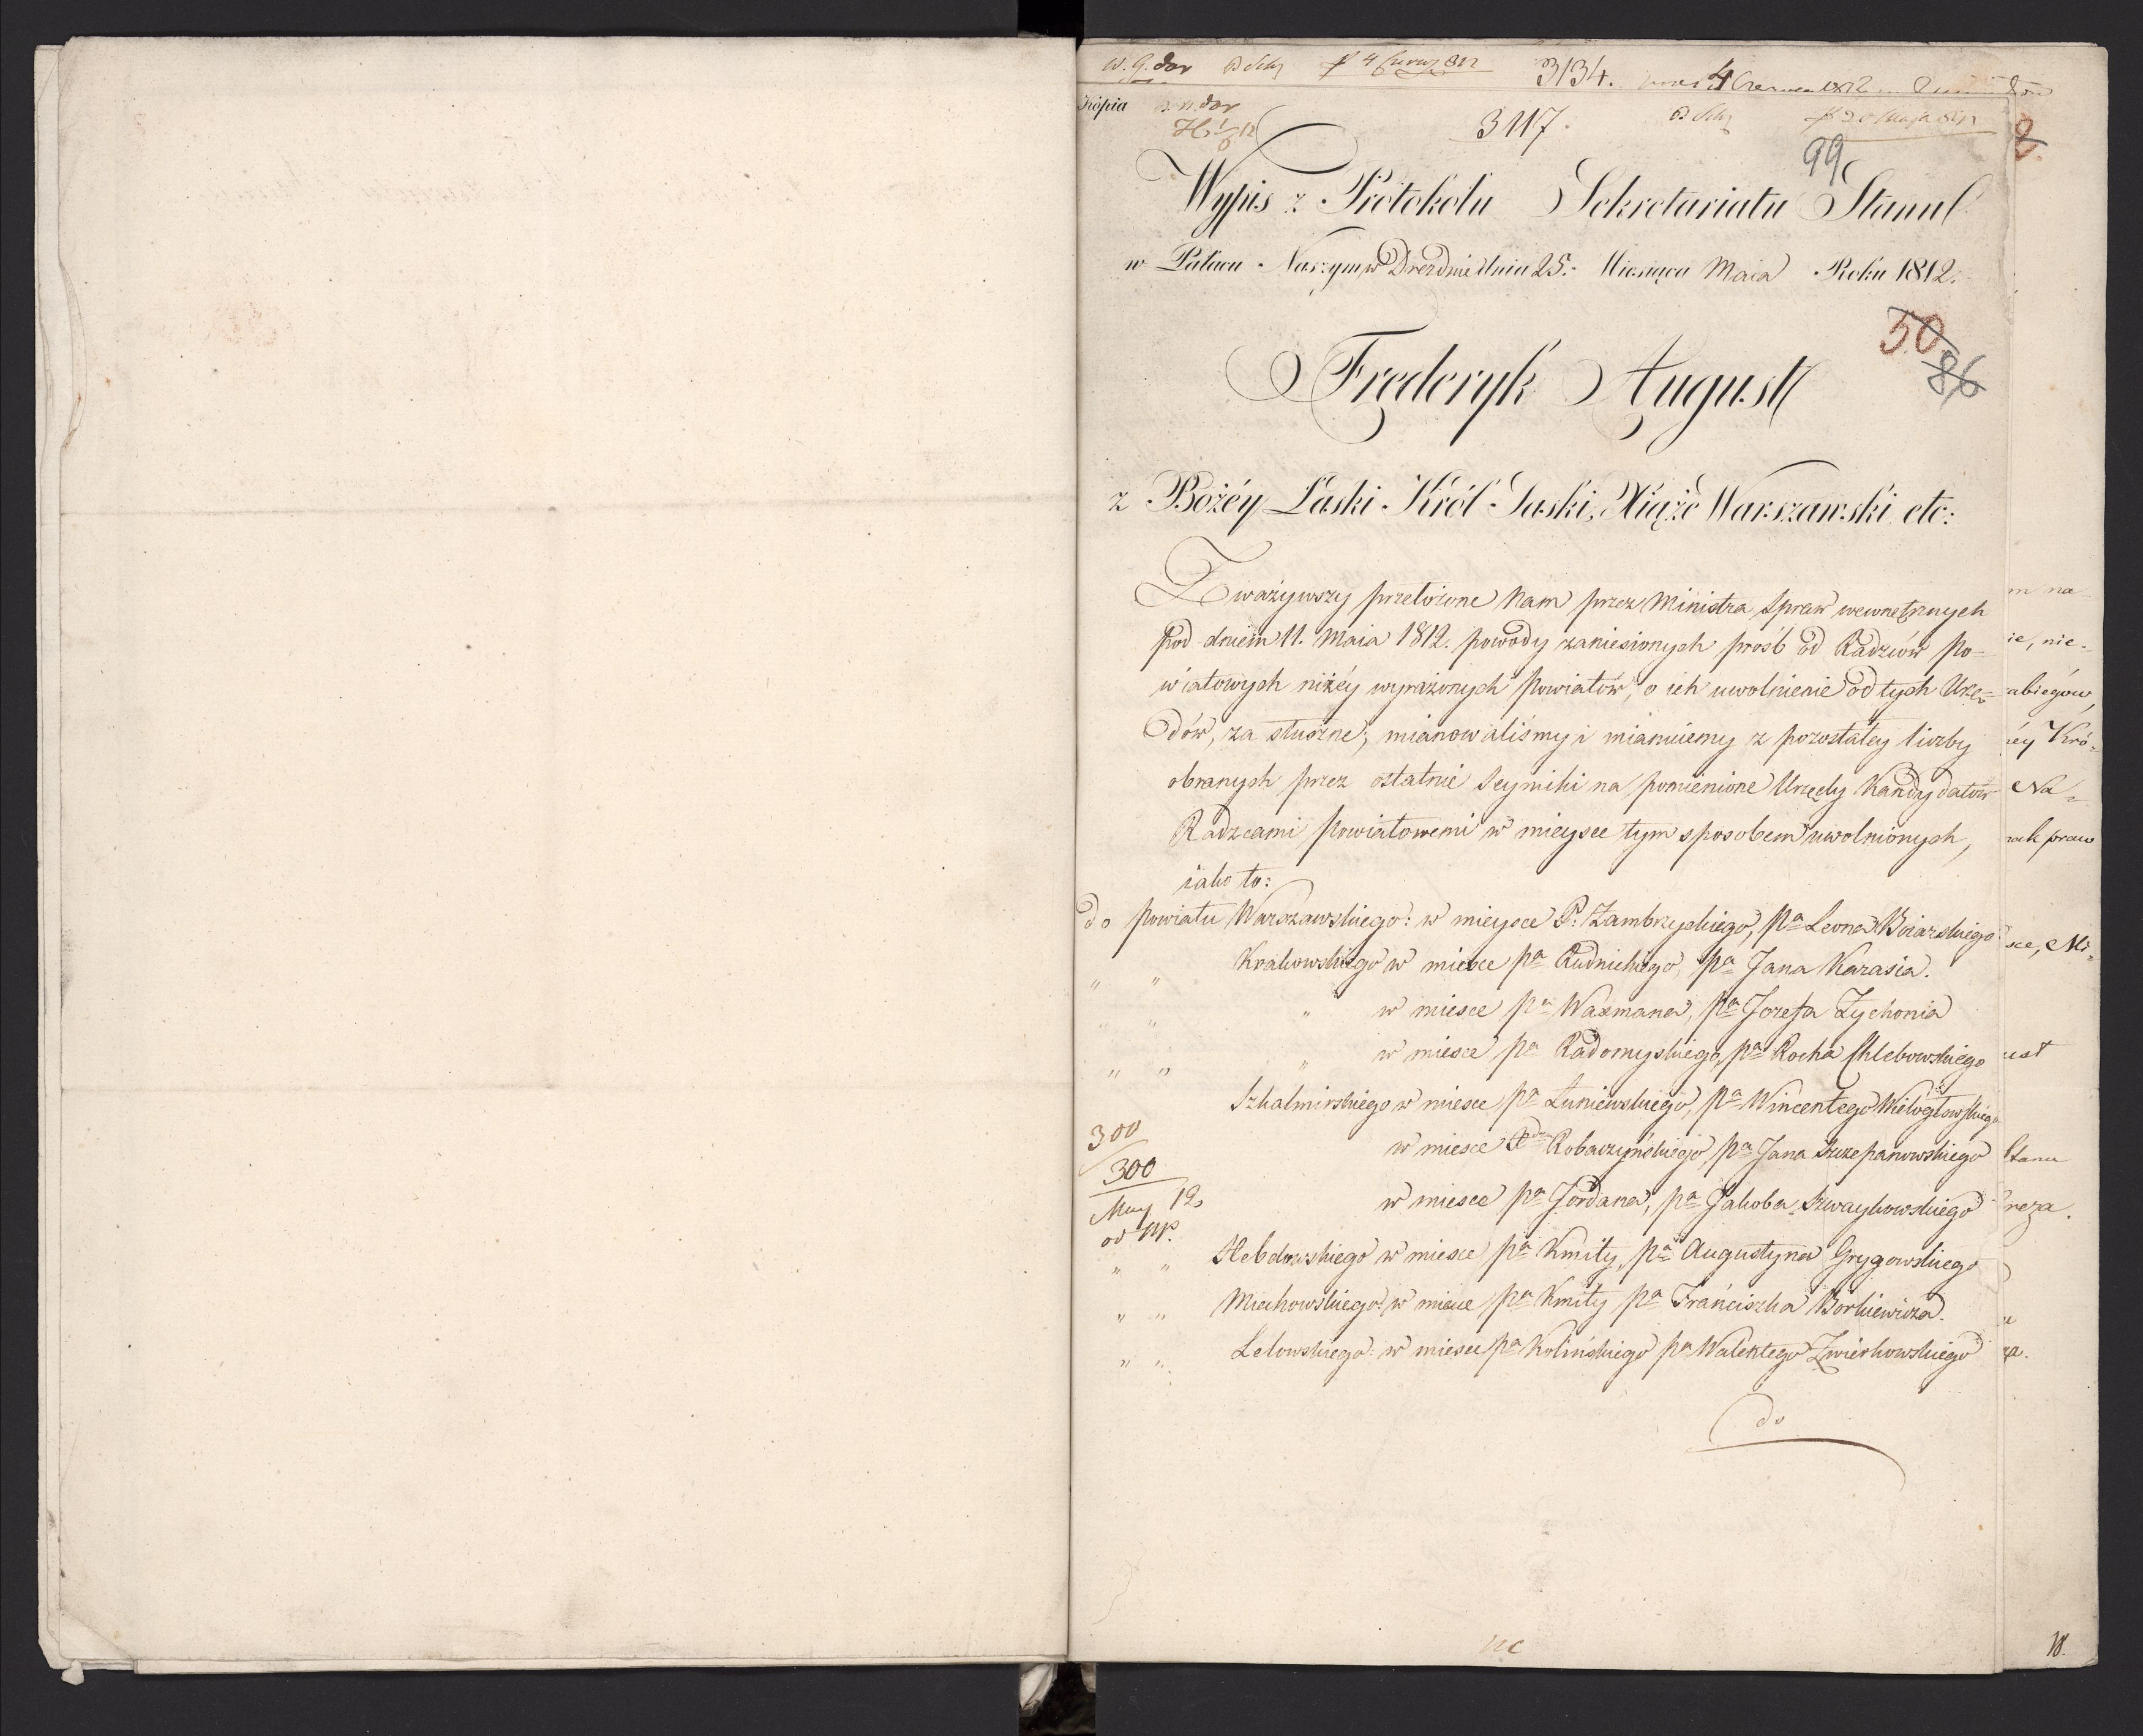 3134.
4 Czerwca 1812
Kopia
3117.
99
Wypis z Protokołu Sekretariatu Stanu
w Pałacu Naszym w Dreznie dnia 25. Miesiąca Maia Roku 1812.
50
86
Frederyk August
z Bożéy Łaski Król Saski, Xiąże Warszawski etc:
Zważywszy przełożone Nam przez Ministra Spraw wewnętrznych
pod dniem 11. Maia 1812. powody zaniesionych prośb od Radzców Po=
wiatowych niżéy wyrażonych Powiatów, o ich uwolnienie od tych Urzę=
dów, za słuszne; mianowaliśmy i mianuiemy z pozostałey liczby
obranych przez ostatnie Seymiki na pomienione Urzędy Kandydatów
Radzcami Powiatowemi w mieysce tym sposobem uwolnionych,
iako to:
do Powiatu Warszawskiego: w mieysce P. Zambrzyckiego, Pa Leona Boiarskiego
" " Krakowskiego w miesce Pa Rudnickiego, Pa Jana Karasia.
" " " w miesce Pa Waxmana, Pa Jozefa Zychonia
" " " w miesce Pa Radomyskiego, Pa Rocha Chlebowskiego
Szkalmirskiego w miesce Pa Łuniewskiego, Pa Wincentego Wielogłowskiego
w miesce Robaczyńskiego, Pa Jana Szczepanowskiego
w miesce Pa Jordana, Pa Jakoba Szwaykowskiego
300
300
" " Hebdowskiego w miesce Pa Kmity, Pa Augustyna Grygowskiego
" " Miechowskiego: w miesce Pa Kmity Pa Franciszka Borkiewicza.
" " Lelowskiego: w miesce Pa Kolińskiego Pa Walentego Zwierkowskiego
do
m na
ie, nie=
abiegow,
éy Kró=
Na=
rak praw
sce, Mi=
ust
Stanu
reza.
za.
18.